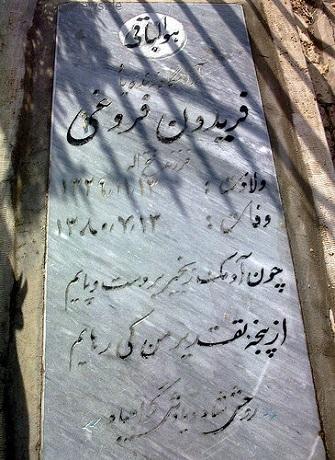 هوالباقی
آرامگاه زنده یاد
فریدون فروغی
فرزند فتح اله
ولادت : ۱۳۲۹،۱۱،۱۳
وفات : ۱۳۸۰،۷،۱۳
چون آدمک زنجیر بر دست و پایم
از پنجه تقدیر من کی رهایم
روحش شاد و یادش گرامی باد